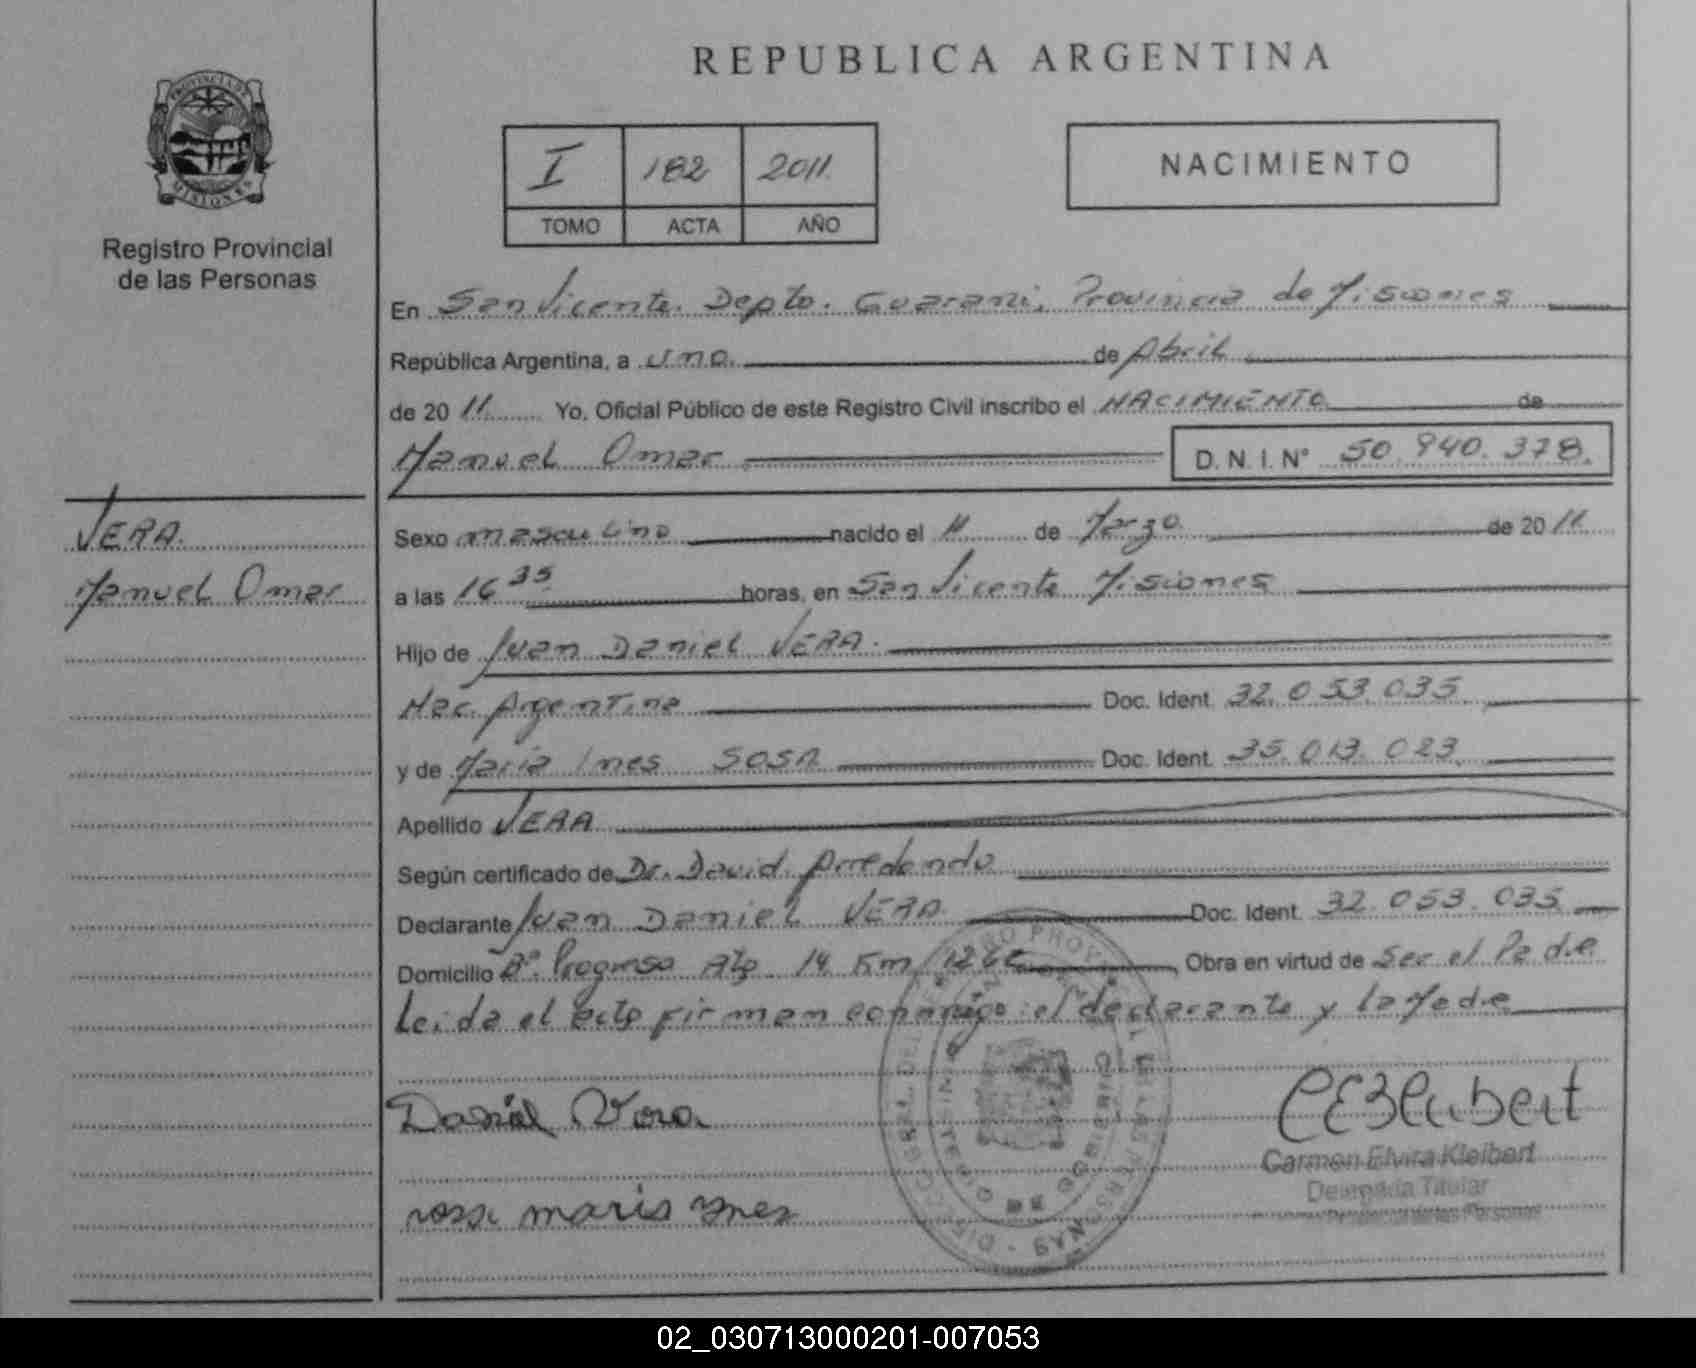 REPUBLICA ARGENTINA
PROVINCIA DE
MISIONES
Registro Provincial
de las Personas
I 182 2011
TOMO ACTA AÑO
NACIMIENTO
En San Vicente. Depto. Guarani, Provincia de Misiones
República Argentina, a uno. de Abril
de 20 11 Yo, Oficial Público de este Registro Civil inscribo el NACIMIENTO de
Manuel Omar D. N. I. N° 50.940.378.
VERA.
Manuel Omar
Sexo masculino nacido el 11 de Marzo de 20 11
a las 16 35 horas, en San Vicente Misiones
Hijo de Juan Daniel VERA.
Nac. Argentina Doc. Ident. 32.053.035
y de Maria Ines SOSA Doc. Ident. 35.013.023
Apellido VERA
Según certificado de Dr. David Arredondo
Declarante Juan Daniel VERA Doc. Ident. 32.053.035
Domicilio B°. Progreso Alto 14 Km, Obra en virtud de Ser el Padre
Leida el acto firman conmigo el declarante y la Madre
Daniel Vera
Carmen Elvira Kleibert
Delegada Titular
maria ynes
02_030713000201-007053